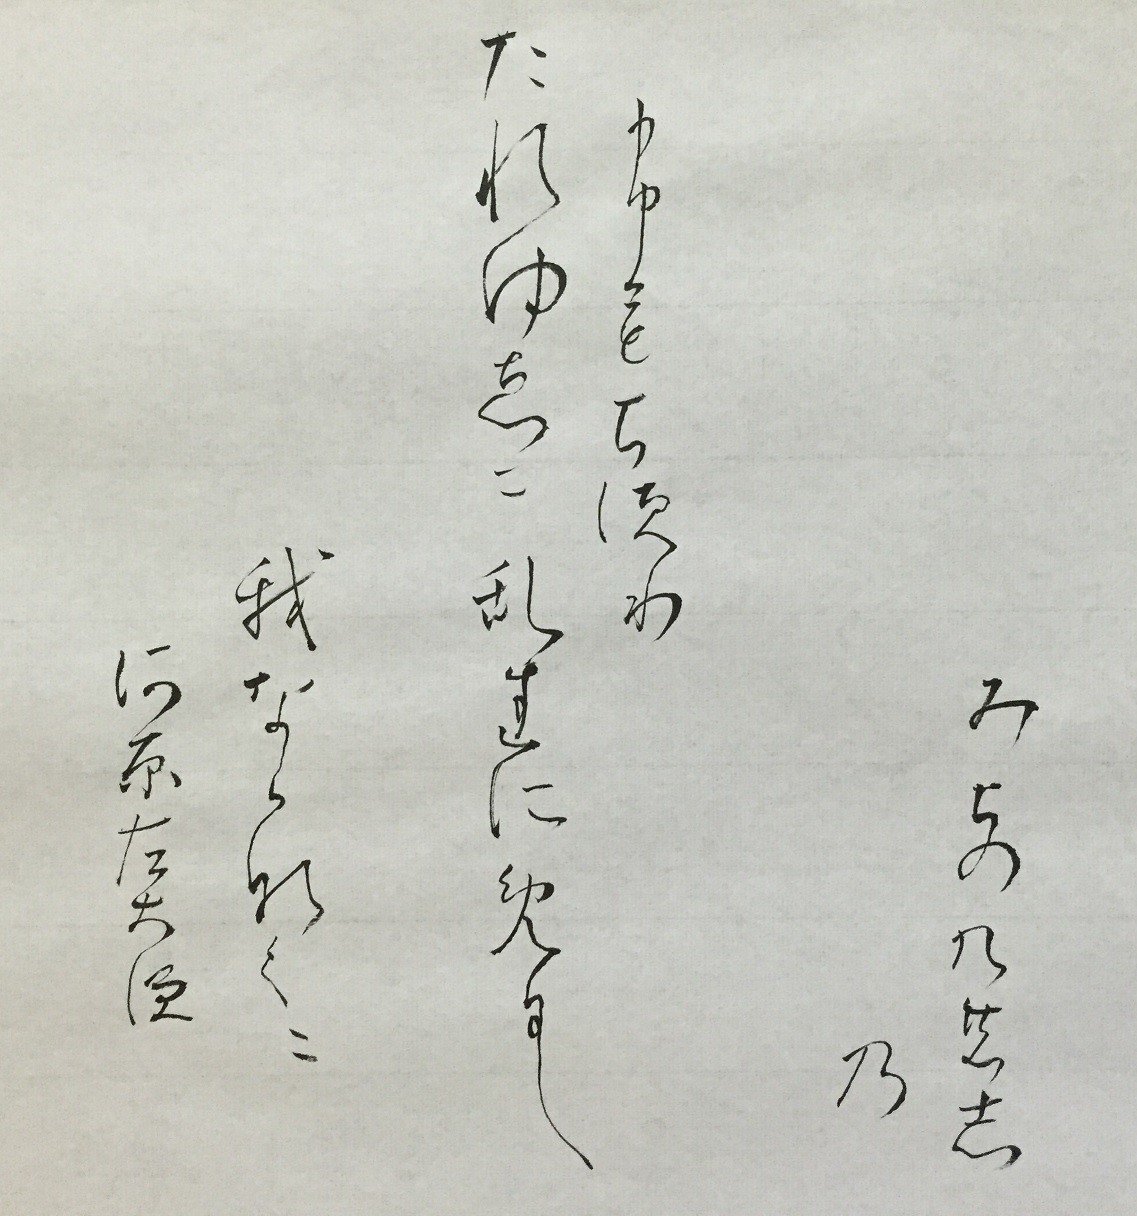 みちのくの志
乃
布もち須り
たれゆゑに乱れそめにし
我ならなくに
河原左大臣